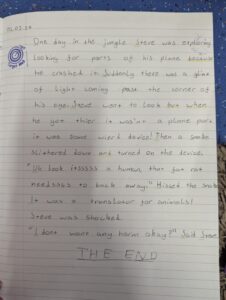 One day in the jungle Steve was exploring
looking for parts of his plane because
he crashed it. Suddenly there was a glint
of light coming past the corner of
his eye. Steve went to look but when
he got thier it was'nt a plane part
it was some wierd device! Then a snake
slithered down and turned on the device.
look itsssss a human that far
need to back away." Hissed the snake
It was a translator for animals!
Steve was shocked.
"I dont want any harm okay?" Said Steve.
THE END